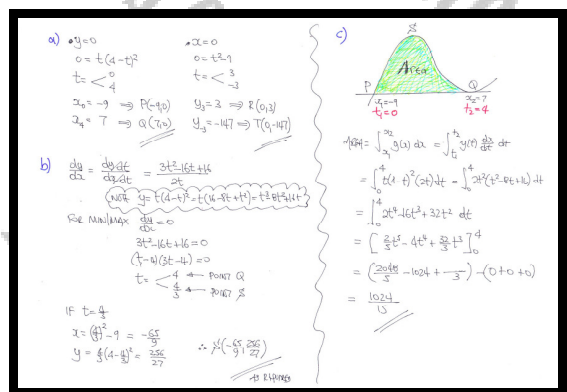 a) • y=0
0 = t(4-t)²
t = < 0
4
x₀ = -9 ⟹ P(-9,0)
x₄ = 7 ⟹ Q(7,0)
• x=0
0 = t²-9
t = < 3
-3
y₃ = 3 ⟹ R(0,3)
y₋₃ = -147 ⟹ T(0,-147)
b) dy/dx = (dy/dt)/(dx/dt) = (3t²-16t+16)/2t
NOTE y = t(4-t)² = t(16-8t+t²) = t³-8t²+16t
FOR MIN/MAX dy/dx = 0
3t²-16t+16=0
(t-4)(3t-4)=0
t = < 4 ← POINT Q
4/3 ← POINT S
IF t = 4/3
x = (4/3)² - 9 = -65/9
y = 4/3(4-4/3)² = 256/27
∴ S(-65/9, 256/27)
AS REQUIRED
c) S
Area
P
Q
x₁=-9
t₁=0
x₂=7
t₂=4
AREA = ∫ₓ₁ˣ² y(x) dx = ∫ₜ₁ᵗ² y(t) dx/dt dt
= ∫₀⁴ t(4-t)²(2t) dt = ∫₀⁴ 2t²(t²-8t+16) dt
= ∫₀⁴ 2t⁴-16t³+32t² dt
= [2/5 t⁵ - 4t⁴ + 32/3 t³]₀⁴
= (2048/5 - 1024 + /3) - (0+0+0)
= 1024/15